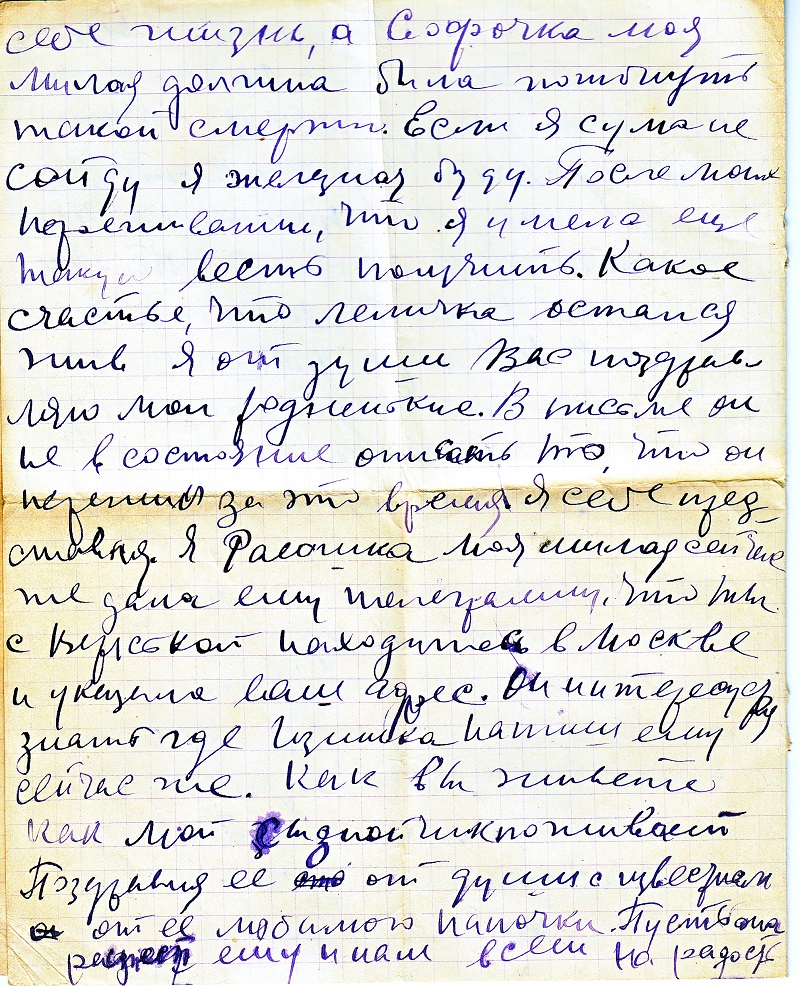 себе жизнь, а Софочка моя
милая должна была погибнуть
такой смерти. Если я сума не
сойду я железная буду. После моих
переживании, что я умела еще
такую весть получить. Какое
счастье, что Леличка остался
жив я от души Вас поздрав
ляю мои родненькие. В письме он
не в состояние описать то, что он
пережил за это время. Я себе пред-
ставляя. Я Расочика моя милая сейчас
же дала ему телеграмму, что ты
с находитесь в Москве
и указала ваш адрес. Он интересуется
знать где Изичка напиши ему
сейчас же. Как вы живете
как мой поживает
Поздравия ее от души с известием
от ее любимого папочки. Пусть она
растет ему и нам всем на радость